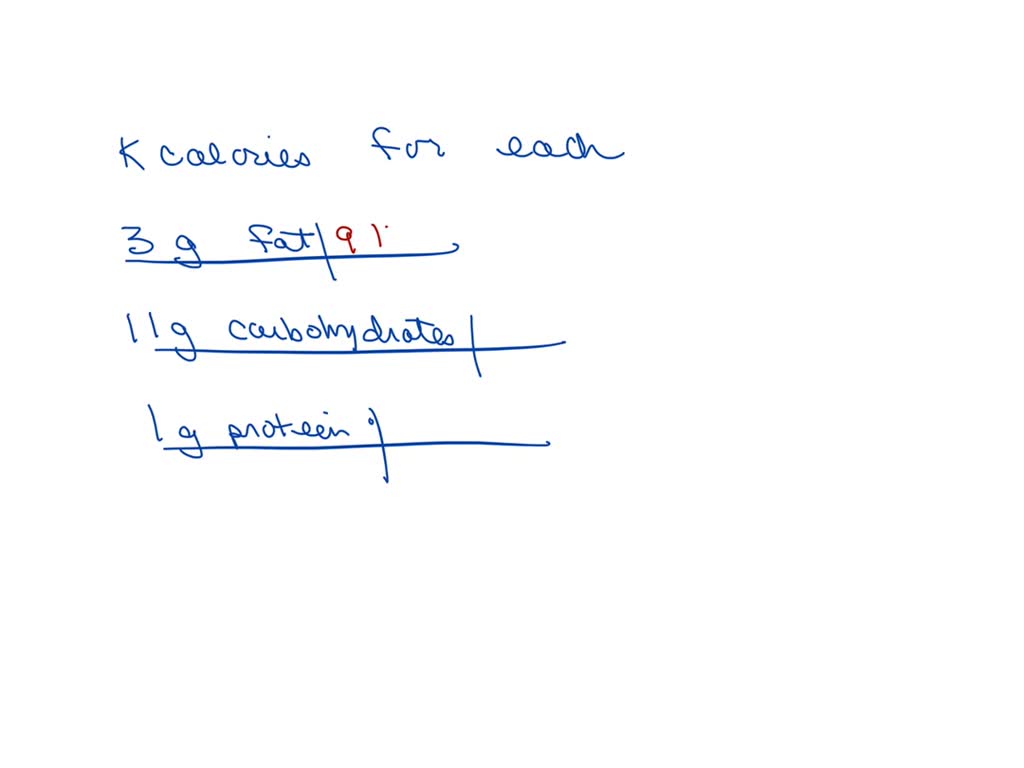 Kcalories for each
3 g fat | 9 k
11g carbohydrates |
1g protein |